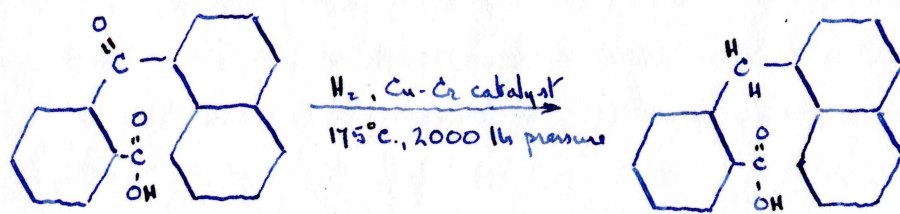 O
C
O
C
OH
H₂, Cu-Cr catalyst
175°C., 2000 lbs pressure
H
C
H
O
C
OH